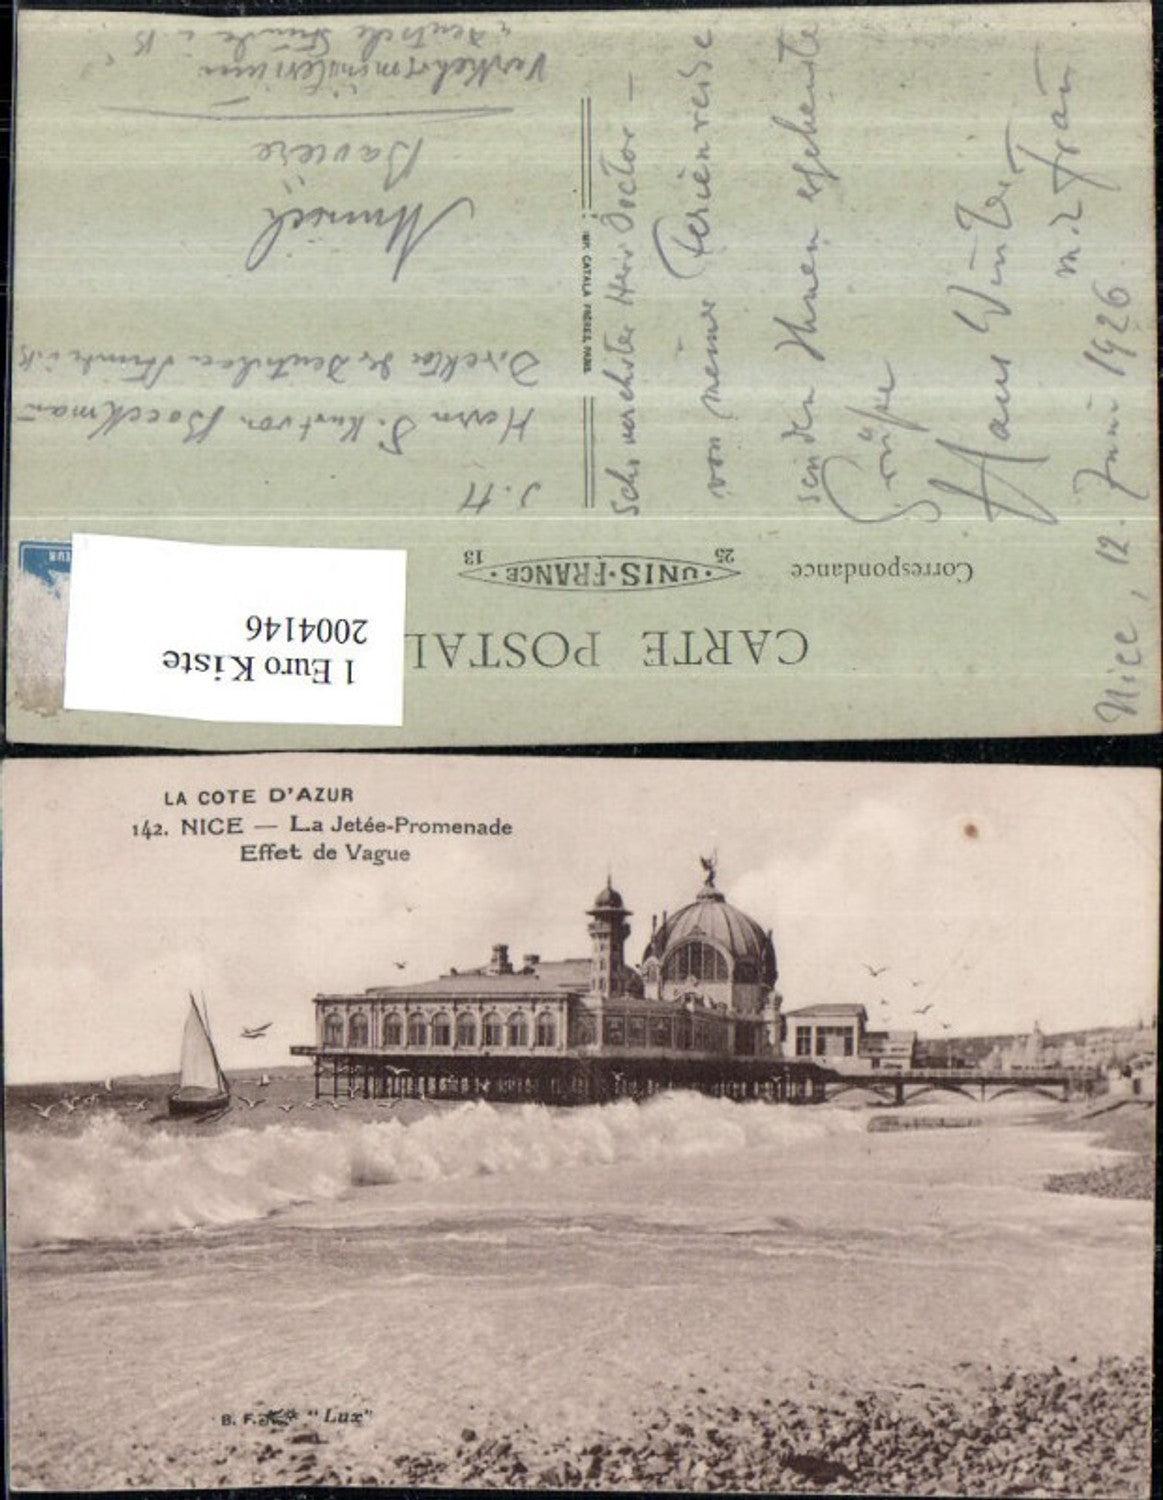 CARTE POSTALE
Correspondance
25 · UNIS-FRANCE · 13
1 Euro Kiste
2004146
EUR
IMP. CATALA FRÈRES, PARIS
Nice, 12. Juni 1926
Schr verehrter Herr Doctor —
von meiner Ferienreise
senden Ihnen ergebenste
Grüße
Hans Winter
mit Frau
S. H
Herrn D. Kurt von Boeckmann
Direktor der Deutschen Stunde i. B
Münich
Baviere
Verkehrsministerium
"Deutsche Stunde i. B"
LA COTE D'AZUR
142. NICE — La Jetée-Promenade
Effet de Vague
B. F. "Lux"